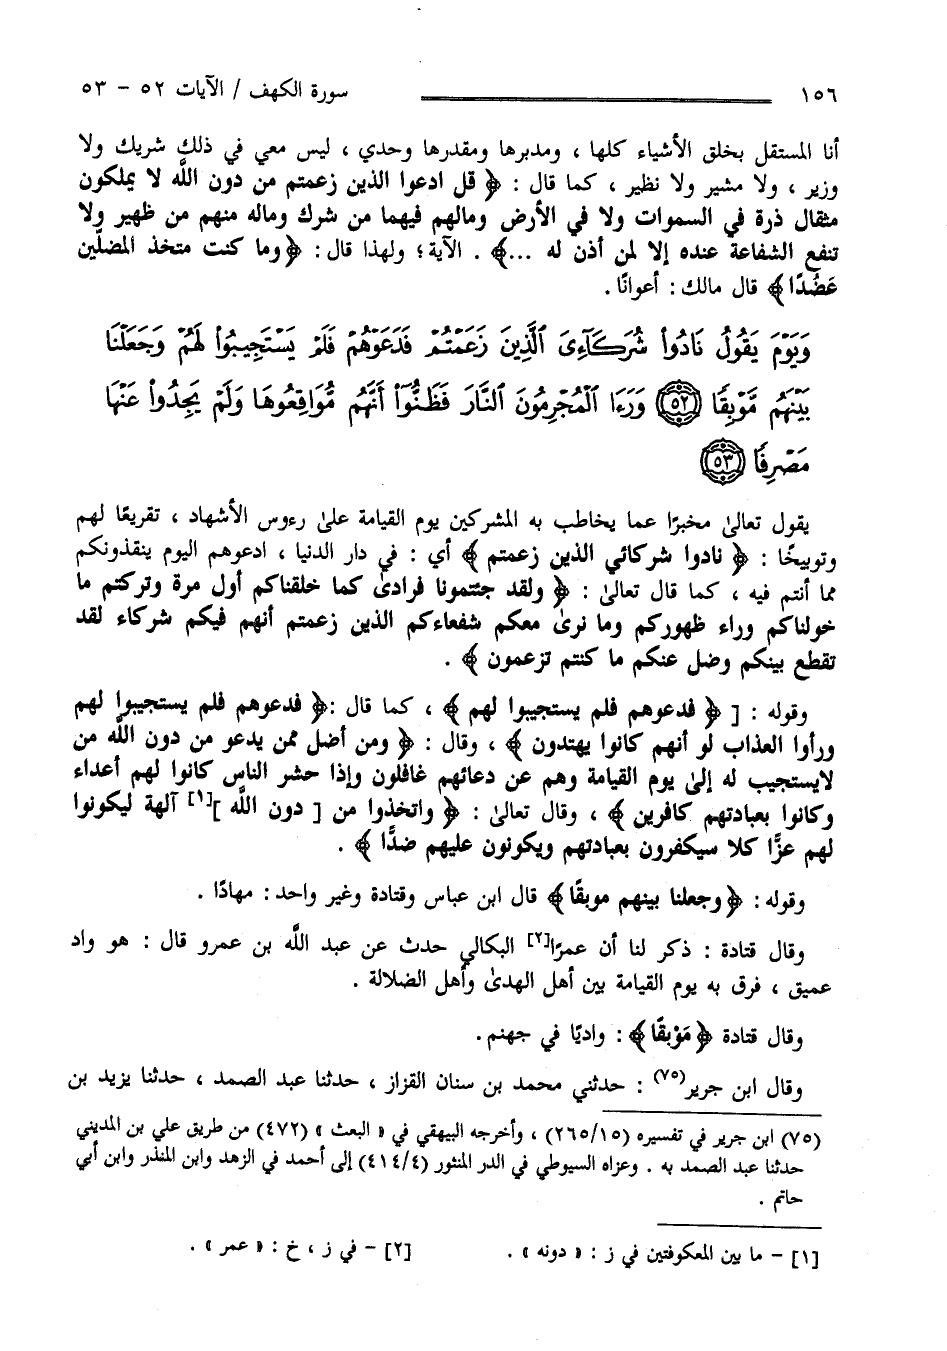 ١٥٦ سورة الكهف / الآيات ٥٢ – ٥٣
أنا المستقل بخلق الأشياء كلها ، ومدبرها ومقدرها وحدي ، ليس معي في ذلك شريك ولا
وزير ، ولا مشير ولا نظير ، كما قال : ﴿ قل ادعوا الذين زعمتم من دون الله لا يملكون
مثقال ذرة في السموات ولا في الأرض ومالهم فيهما من شرك وماله منهم من ظهير ولا
تنفع الشفاعة عنده إلا لمن أذن له ...﴾ . الآية ؛ ولهذا قال : ﴿وما كنت متخذ المضلّين
عَضُدًا﴾ قال مالك : أعوانًا .
وَيَوْمَ يَقُولُ نَادُواْ شُرَكَآءِىَ ٱلَّذِينَ زَعَمْتُمْ فَدَعَوْهُمْ فَلَمْ يَسْتَجِيبُواْ لَهُمْ وَجَعَلْنَا
بَيْنَهُم مَّوْبِقًا ٥٢ وَرَءَا ٱلْمُجْرِمُونَ ٱلنَّارَ فَظَنُّوٓاْ أَنَّهُم مُّوَاقِعُوهَا وَلَمْ يَجِدُواْ عَنْهَا
مَصْرِفًا ٥٣
يقول تعالىٰ مخبرًا عما يخاطب به المشركين يوم القيامة علىٰ رءوس الأشهاد ، تقريعًا لهم
وتوبيخًا : ﴿ نادوا شركائي الذين زعمتم ﴾ أي : في دار الدنيا ، ادعوهم اليوم ينقذونكم
مما أنتم فيه ، كما قال تعالىٰ : ﴿ ولقد جئتمونا فرادىٰ كما خلقناكم أول مرة وتركتم ما
خولناكم وراء ظهوركم وما نرىٰ معكم شفعاءكم الذين زعمتم أنهم فيكم شركاء لقد
تقطع بينكم وضل عنكم ما كنتم تزعمون ﴾ .
وقوله : [ ﴿ فدعوهم فلم يستجيبوا لهم ﴾ ، كما قال :﴿ فدعوهم فلم يستجيبوا لهم
ورأوا العذاب لو أنهم كانوا يهتدون ﴾ ، وقال : ﴿ ومن أضل ممن يدعو من دون الله من
لايستجيب له إلىٰ يوم القيامة وهم عن دعائهم غافلون وإذا حشر الناس كانوا لهم أعداء
وكانوا بعبادتهم كافرين ﴾ ، وقال تعالىٰ : ﴿ واتخذوا من [ دون الله ][١] آلهة ليكونوا
لهم عزًّا كلا سيكفرون بعبادتهم ويكونون عليهم ضدًّا ﴾ .
وقوله : ﴿وجعلنا بينهم موبقًا﴾ قال ابن عباس وقتادة وغير واحد : مهادًا .
وقال قتادة : ذكر لنا أن عمرًا[٢] البكالي حدث عن عبد الله بن عمرو قال : هو واد
عميق ، فرق به يوم القيامة بين أهل الهدىٰ وأهل الضلالة .
وقال قتادة ﴿مَوْبقًا﴾ : واديًا في جهنم.
وقال ابن جرير(٧٥) : حدثني محمد بن سنان القزاز ، حدثنا عبد الصمد ، حدثنا يزيد بن
(٧٥) ابن جرير في تفسيره (٢٦٥/١٥) ، وأخرجه البيهقي في « البعث » (٤٧٢) من طريق علي بن المديني
حدثنا عبد الصمد به . وعزاه السيوطي في الدر المنثور (٤١٤/٤) إلى أحمد في الزهد وابن المنذر وابن أبي
حاتم .
[١] – ما بين المعكوفتين في ز : « دونه » . [٢] – في ز ، خ : « عمر » .